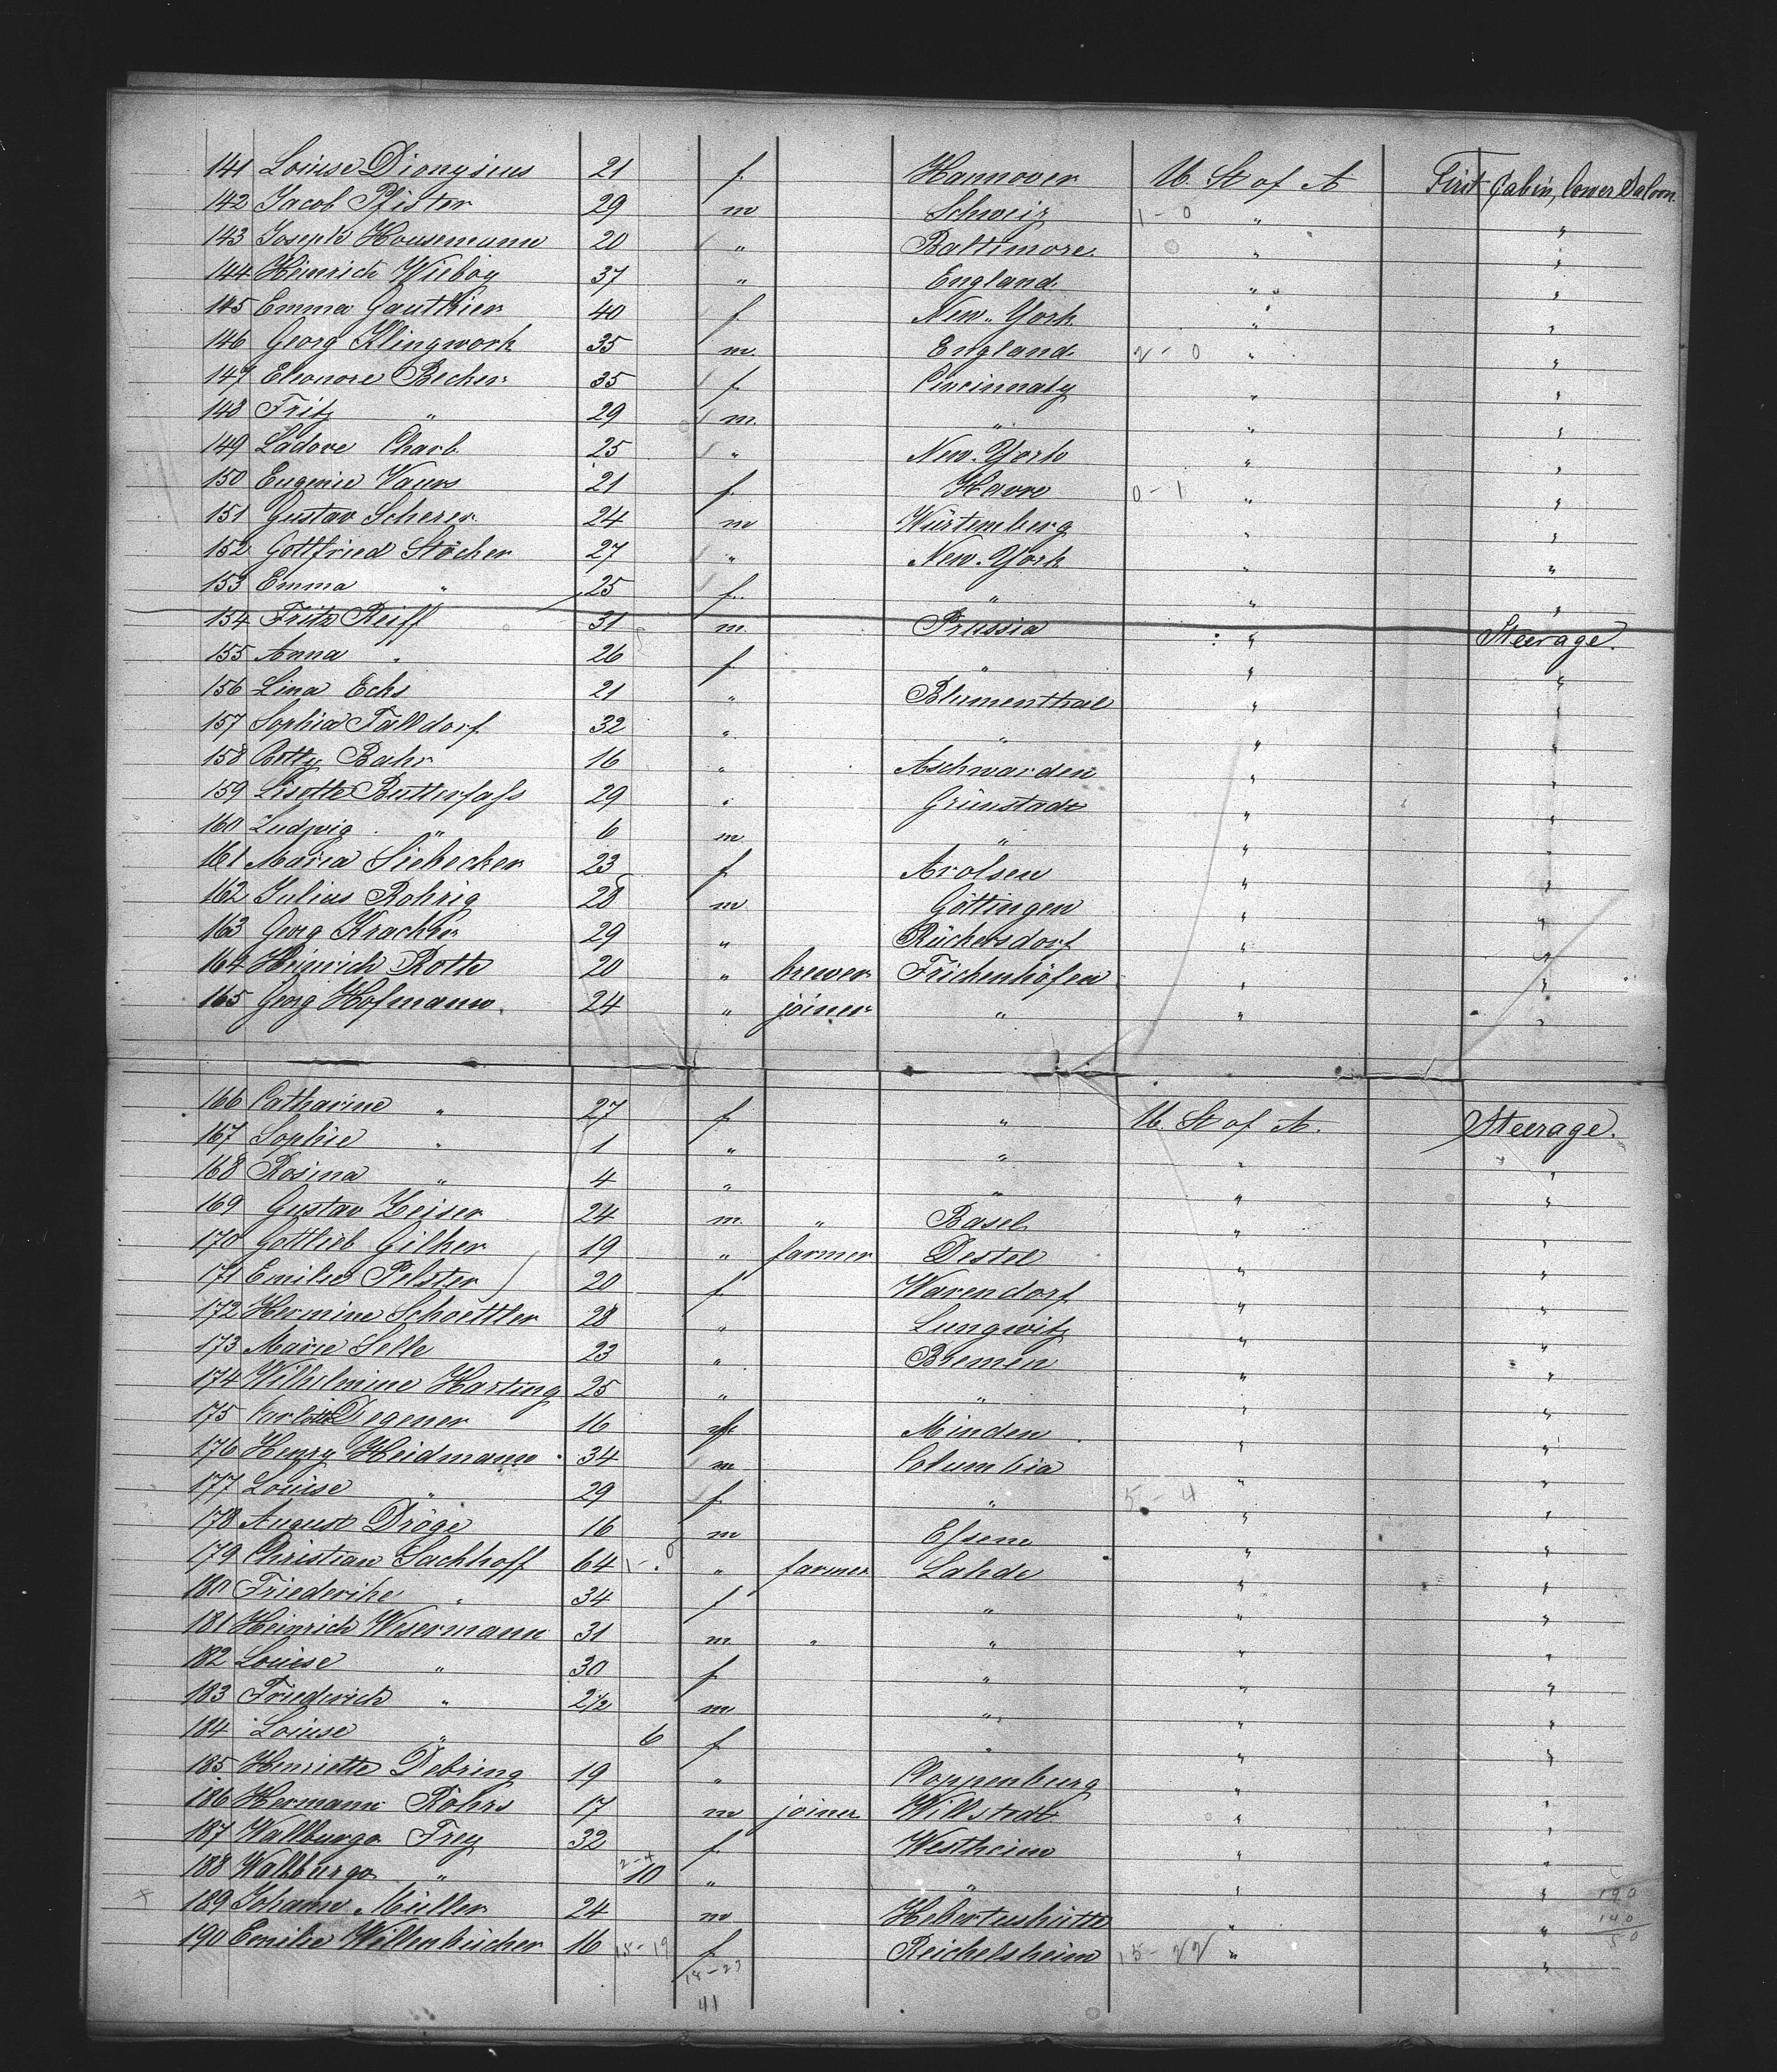 141 Louise Dionysius 21 f. Hannover U. St of A First Cabin, lower Saloon.
142 Jacob Pfister 29 m Schweiz 1-0 " "
143 Joseph Housemann 20 " Baltimore. 0 " "
144 Heinrich Wieboy 37 " England. " "
145 Emma Gauthier 40 f New-York " "
146 Georg Klingwork 35 m. England. 2-0 " "
147 Eleonore Becker 35 f Cincinnaty " "
148 Fritz " 29 m. " " "
149 Ladore Charb. 25 " New-York " "
150 Eugenie Vaurs 21 f. Havre 0-1 " "
151 Gustav Scherer 24 m Würtemberg " "
152 Gottfried Stöcher 27 " New-York " "
153 Emma " 25 f. " " "
154 Fritz Reiff 31 m. Prussia " Steerage.
155 Anna " 26 f " " "
156 Lina Echs 21 " Blumenthal " "
157 Sophia Falldorf 32 " " " "
158 Betty Bahr 16 " Aschwarden " "
159 Lisette Butterfass 29 " Grünstadt " "
160 Ludwig " 6 m " " "
161 Maria Siebecker 23 f Arolsen " "
162 Julius Rohrig 28 m Göttingen " "
163 Georg Krachler 29 " Rückersdorf " "
164 Heinrich Rotte 20 " brewer Frickenhöfen " "
165 Georg Hofmann 24 " joiner " " "
166 Catharine " 27 f " U. St of A. Steerage.
167 Sophie " 1 " " " "
168 Rosina " 4 " " " "
169 Gustav Zeiser 24 m. " Basel " "
170 Gottlieb Gilker 19 " farmer Destel " "
171 Emilie Pelster 20 f Warendorf " "
172 Hermine Schoettler 28 " Lungwitz " "
173 Marie Selle 23 " Bremen " "
174 Wilhelmine Hartung 25 " " " "
175 Carlotte Degener 16 f Minden " "
176 Henry Heidmann 34 m Columbia " "
177 Louise " 29 f " 5-4 " "
178 August Dröge 16 m Essen " "
179 Christian Sachhoff 64 " farmer Lahde " "
180 Friederike " 34 f " " "
181 Heinrich Wesermann 31 m " " " "
182 Louise " 30 f " " "
183 Friedrich " 2½ m " " "
184 Louise " 6 f " " "
185 Henriette Debring 19 " Cloppenburg " "
186 Hermann Röhrs 17 m joiner Willstedt " "
187 Wallburga Frey 32 f Westheim " "
188 Wallburga " 2-4 10 " " " "
189 Johann Müller 24 m Hubertushütte " " 190
190 Emilie Willenbücher 16 15-19 f Reichelsheim 15-22 " " 140
50
18-23
41